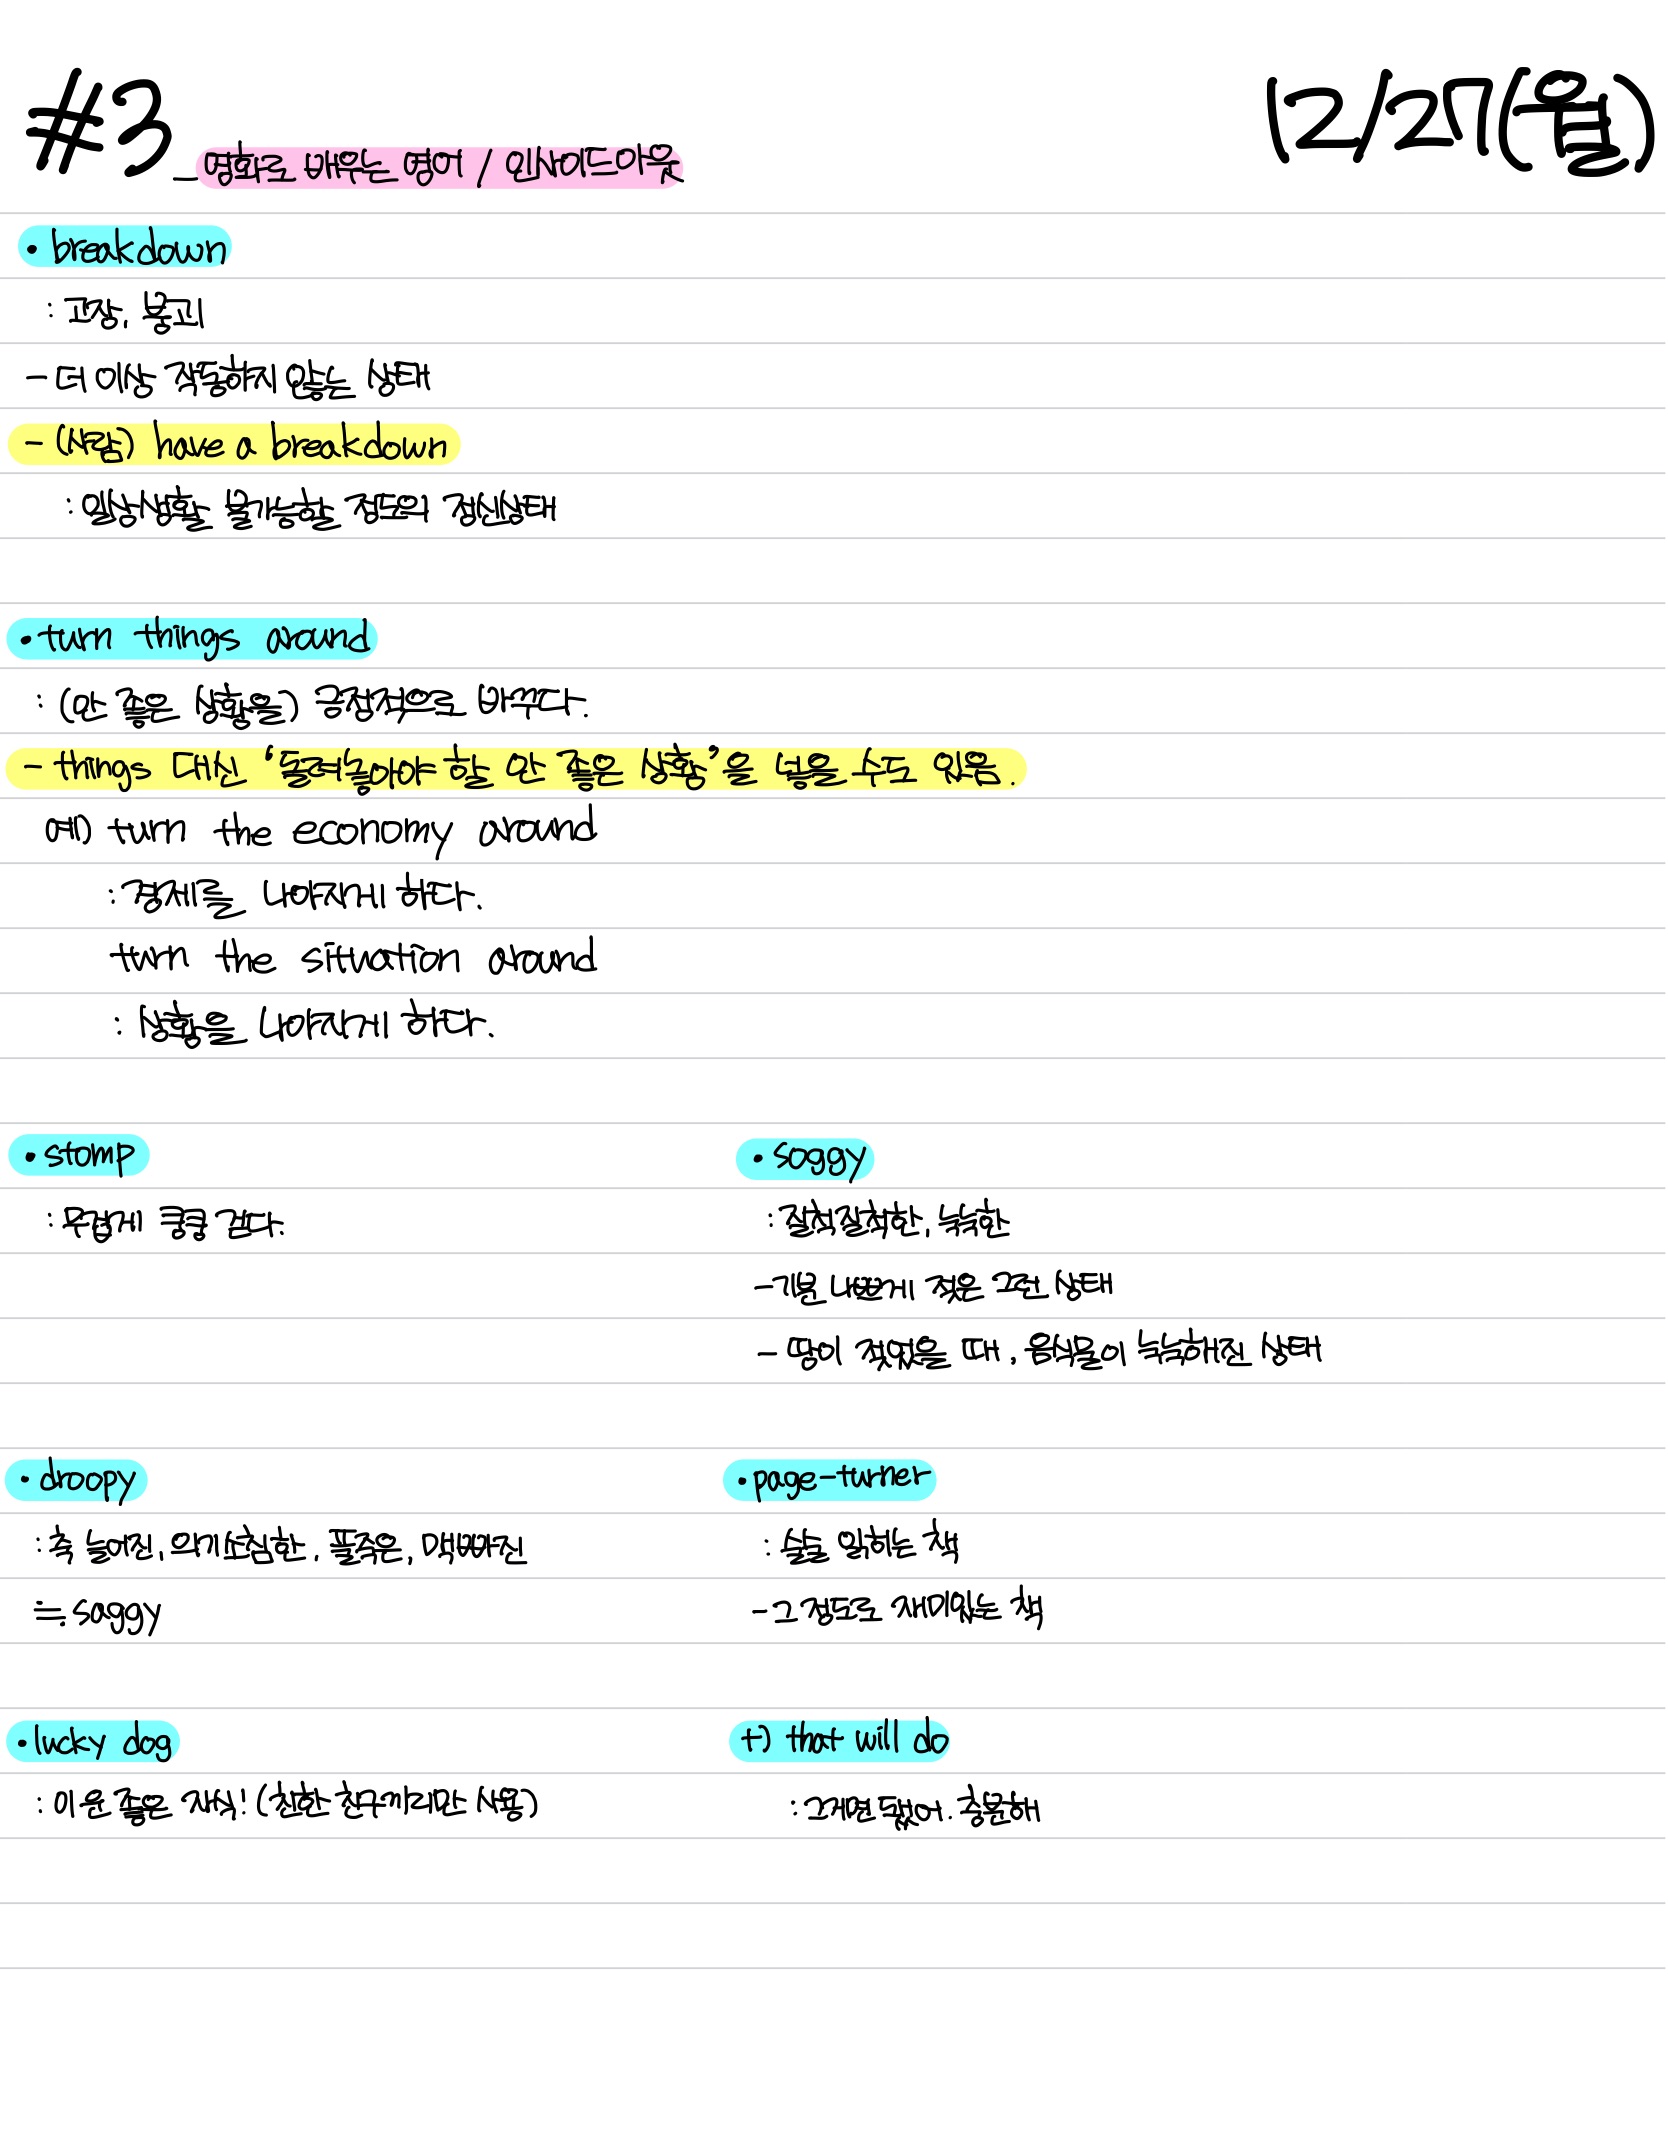 #3_영화로 배우는 영어 / 인사이드아웃
12/27(월)
• breakdown
: 고장, 붕괴
- 더 이상 작동하지 않는 상태
- (사람) have a breakdown
: 일상생활 불가능할 정도의 정신상태
• turn things around
: (안 좋은 상황을) 긍정적으로 바꾸다.
- things 대신 '돌려놓아야 할 안 좋은 상황'을 넣을 수도 있음.
예) turn the economy around
: 경제를 나아지게 하다.
turn the situation around
: 상황을 나아지게 하다.
• stomp
: 무겁게 쿵쿵 걷다.
• soggy
: 질척질척한, 눅눅한
- 기분 나쁘게 젖은 그런 상태
- 땅이 젖었을 때, 음식물이 눅눅해진 상태
• droopy
: 축 늘어진, 의기소침한, 풀죽은, 맥빠진
≒ saggy
• page-turner
: 술술 읽히는 책
- 그 정도로 재미있는 책
• lucky dog
: 이 운 좋은 자식! (친한 친구끼리만 사용)
+) that will do
: 그거면 됐어. 충분해